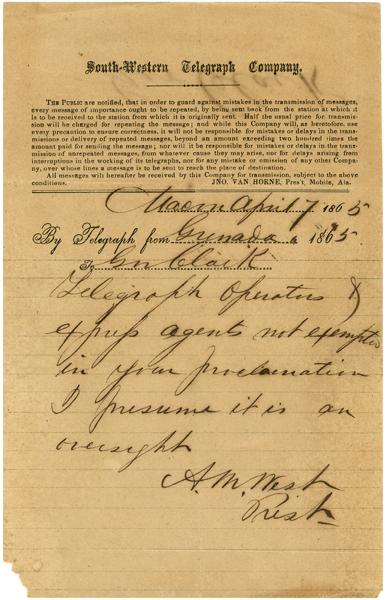 South-Western Telegraph Company.
The Public are notified, that in order to guard against mistakes in the transmission of messages,
every message of importance ought to be repeated, by being sent back from the station at which it
is to be received to the station from which it is originally sent. Half the usual price for transmis-
sion will be charged for repeating the message; and while this Company will, as heretofore, use
every precaution to ensure correctness, it will not be responsible for mistakes or delays in the trans-
missions or delivery of repeated messages, beyond an amount exceeding two hundred times the
amount paid for sending the message; nor will it be responsible for mistakes or delays in the trans-
mission of unrepeated messages, from whatever cause they may arise, nor for delays arising from
interruptions in the working of its telegraphs, nor for any mistake or omission of any other Company,
over whose lines a message is to be sent to reach the place of destination.
All messages will hereafter be received by this Company for transmission, subject to the above
conditions. JNO. VAN HORNE, Pres't, Mobile, Ala.
Macon April 7 1865
By Telegraph from Grenada 6 1865
To Gov Clark
Telegraph Operators &
express agents not exempted
in your proclamation
I presume it is an
oversight
A. M. West
Prest